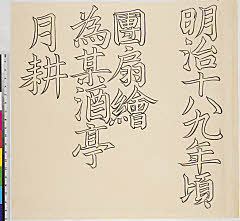 明治十八九年頃
團扇繪
為某酒亭
月耕